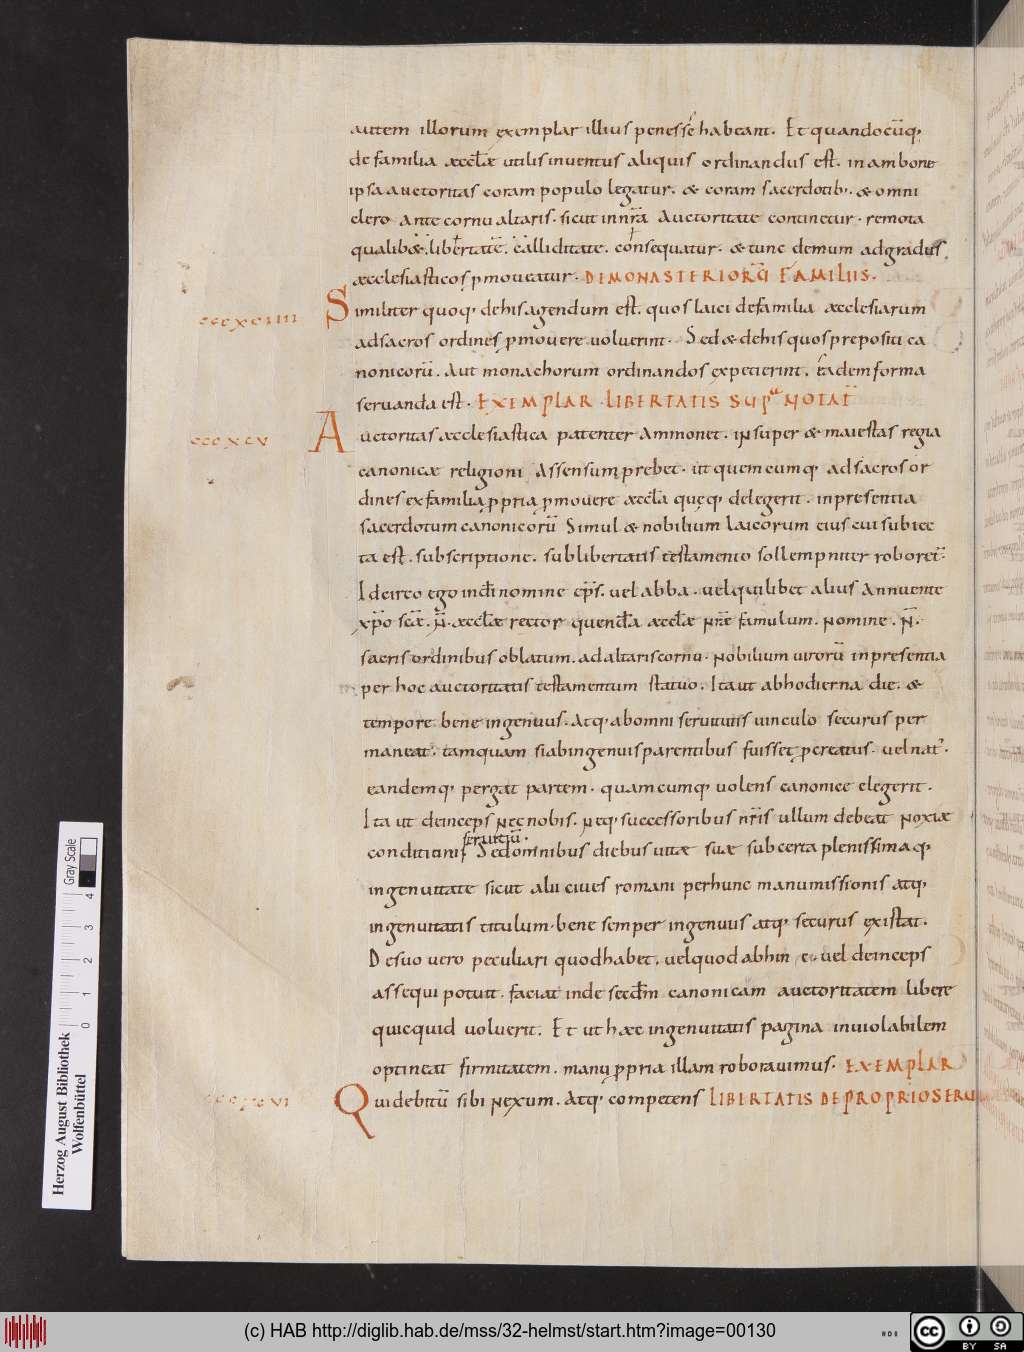 autem illorum exemplar illius penes se habeant. Et quandocūq;
de familia æccłæ utilis inuentus aliquis ordinandus est. in ambone
ipsa auctoritas coram populo legatur. & coram sacerdotib;. & omni
clero ante cornu altaris. sicut in nrā auctoritate continetur. remota
qualib&. libertate. calliditate. consequatur. & tunc demum ad gradus
æcclesiasticos pmoueatur. DE MONASTERIORŪ FAMILIIS.
cccxciiii Similiter quoq; de his agendum est. quos laici de familia æcclesiarum
ad sacros ordines pmouere uoluerint. Sed & de his quos prepositi ca
nonicorū. aut monachorum ordinandos expetierint. eadem forma
seruanda est. EXEMPLAR LIBERTATIS SUPᵃ NOTAT
cccxcv Auctoritas æcclesiastica patenter ammonet. insuper & maiestas regia
canonicæ religioni assensum prebet. ut quemcumq; ad sacros or
dines ex familia ppria pmouere æccła quęq; delegerit. in presentia
sacerdotum canonicorū simul & nobilium laicorum eius cui subiec
ta est. subscriptione. sub libertatis testamento sollempniter roboret̄.
Idcirco ego in di nomine ep̄s. uel abba. uel quilibet alius annuente
xp̄o scæ. N̄. æccłæ rector quendā æccłæ nr̄e famulum. nomine. N̄.
sacris ordinibus oblatum. ad altaris cornu. nobilium uirorū in presentia
per hoc auctoritatis testamentum statuo. Ita ut ab hodierna die. &
tempore bene ingenuus. atq; ab omni seruitutis uinculo securus per
maneat. tamquam si ab ingenuis parentibus fuisset pcreatus. uel nat'.
eandemq; pergat partem. quamcumq; uolens canonice elegerit.
Ita ut deinceps nec nobis. neq; successoribus nr̄is ullum debeat noxiæ
seruitiū.
conditionis Sed omnibus diebus uitæ suæ sub certa plenissimaq;
ingenuitate sicut alii ciues romani per hunc manumissionis atq;
ingenuitatis titulum. bene semper ingenuus atq; securus existat.
De suo uero peculiari quod habet. uel quod abhin c uel deinceps
assequi potuit. faciat inde secdm canonicam auctoritatem libere
quicquid uoluerit. Et ut hæc ingenuitatis pagina inuiolabilem
optineat firmitatem. manu ppria illam roborauimus. EXEMPLAR
cccxcvi Qui debitū sibi nexum. atq; competens LIBERTATIS DE PROPRIO SERU
Herzog August Bibliothek
Wolfenbüttel
0 1 2 3 4
Gray Scale
(c) HAB http://diglib.hab.de/mss/32-helmst/start.htm?image=00130
CC BY SA